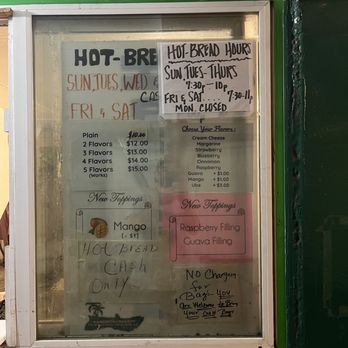 HOT-BRE
SUN, TUES, WED &
CAS
FRI & SAT
HOT-BREAD HOURS
SUN, TUES-THURS
7:30p - 10p
FRI & SAT.... 7:30-11p
MON. CLOSED
Plain $10.00
2 Flavors $12.00
3 Flavors $13.00
4 Flavors $14.00
5 Flavors $15.00
(Works)
Choose Your Flavors:
Cream Cheese
Margarine
Strawberry
Blueberry
Cinnamon
Raspberry
Guava + $1.00
Mango + $1.00
Ube + $1.00
New Toppings
Mango
(+ $1)
HOT BREAD
CASH
ONLY
New Toppings
Raspberry Filling
Guava Filling
NO Charge
for
Bags You
are Welcome to Bring
Your Own Bags